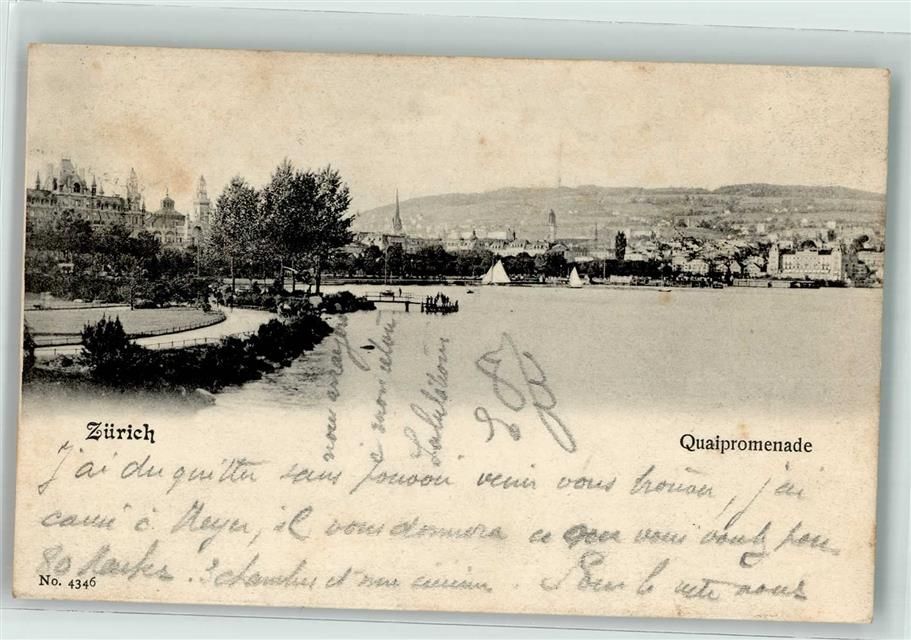 Zürich
Quaipromenade
J'ai du quitter sans pouvoir venir vous trouver, j'ai
à Meyer, il vous donnera ce que vous voulez pour
80 Marks. 3 chambres et une cuisine. Pour le reste nous
nous
à mon retour
Salutations
No. 4346